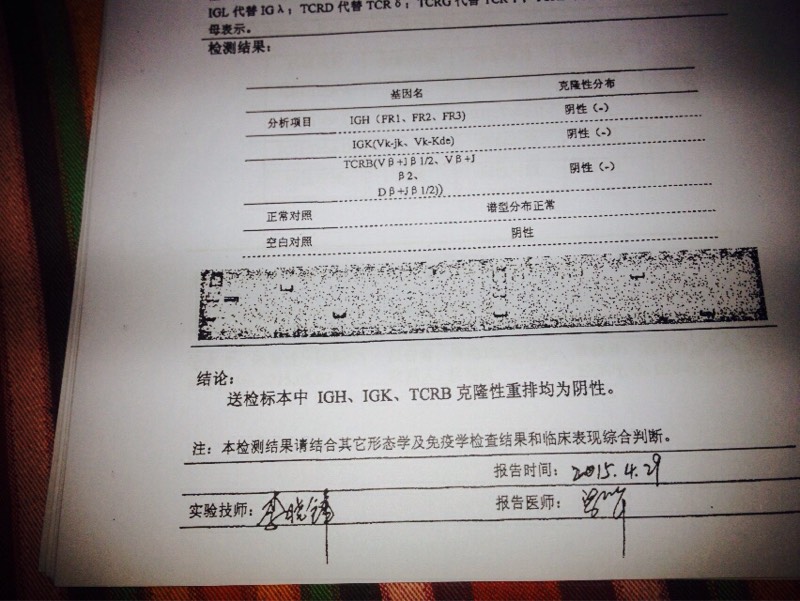 IGL 代替 IGλ；TCRD 代替 TCRδ；TCRG 代替
母表示。
检测结果：
基因名 克隆性分布
分析项目 IGH（FR1、FR2、FR3) 阴性（-）
IGK(Vk-jk、Vk-Kde) 阴性（-）
TCRB(Vβ+Jβ1/2、Vβ+J
β2、 阴性（-）
Dβ+Jβ1/2))
正常对照 谱型分布正常
空白对照 阴性
结论：
送检标本中 IGH、IGK、TCRB 克隆性重排均为阴性。
注：本检测结果请结合其它形态学及免疫学检查结果和临床表现综合判断。
报告时间：2015.4.29
实验技师：李晓锋 报告医师：